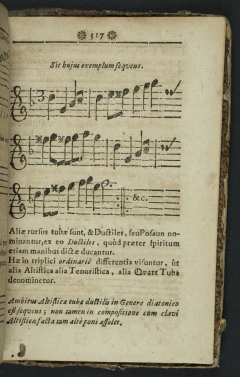 317
Sit hujus exemplum sequens.
&c.
Aliæ rursus tubæ sunt, & Ductiles, seu Posaun no-
minantur, ex eo Ductiles, quòd præter spiritum
etiam manibus dictæ ducantur.
Hæ in triplici ordinariè differentia visuntur, ut
alia Altistica alia Tenoristica, alia Quart Tuba
denominetur.
Ambitus Altisticæ tubæ ductilis in Genere diatonico
est sequens; non tamen in compositione cum clavi
Altistica facta tam altè poni assolet.